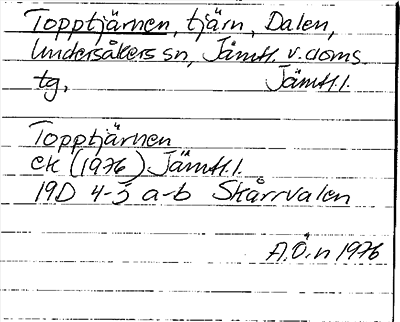 Topptjärnen, tjärn, Dalen,
Undersåkers sn, Jämtl. v. doms.
tg, Jämtl.l.
Topptjärnen
ek (1976) Jämtl.l.
19D 4-5 a-b Skårrvalen
A.Ö.n 1976